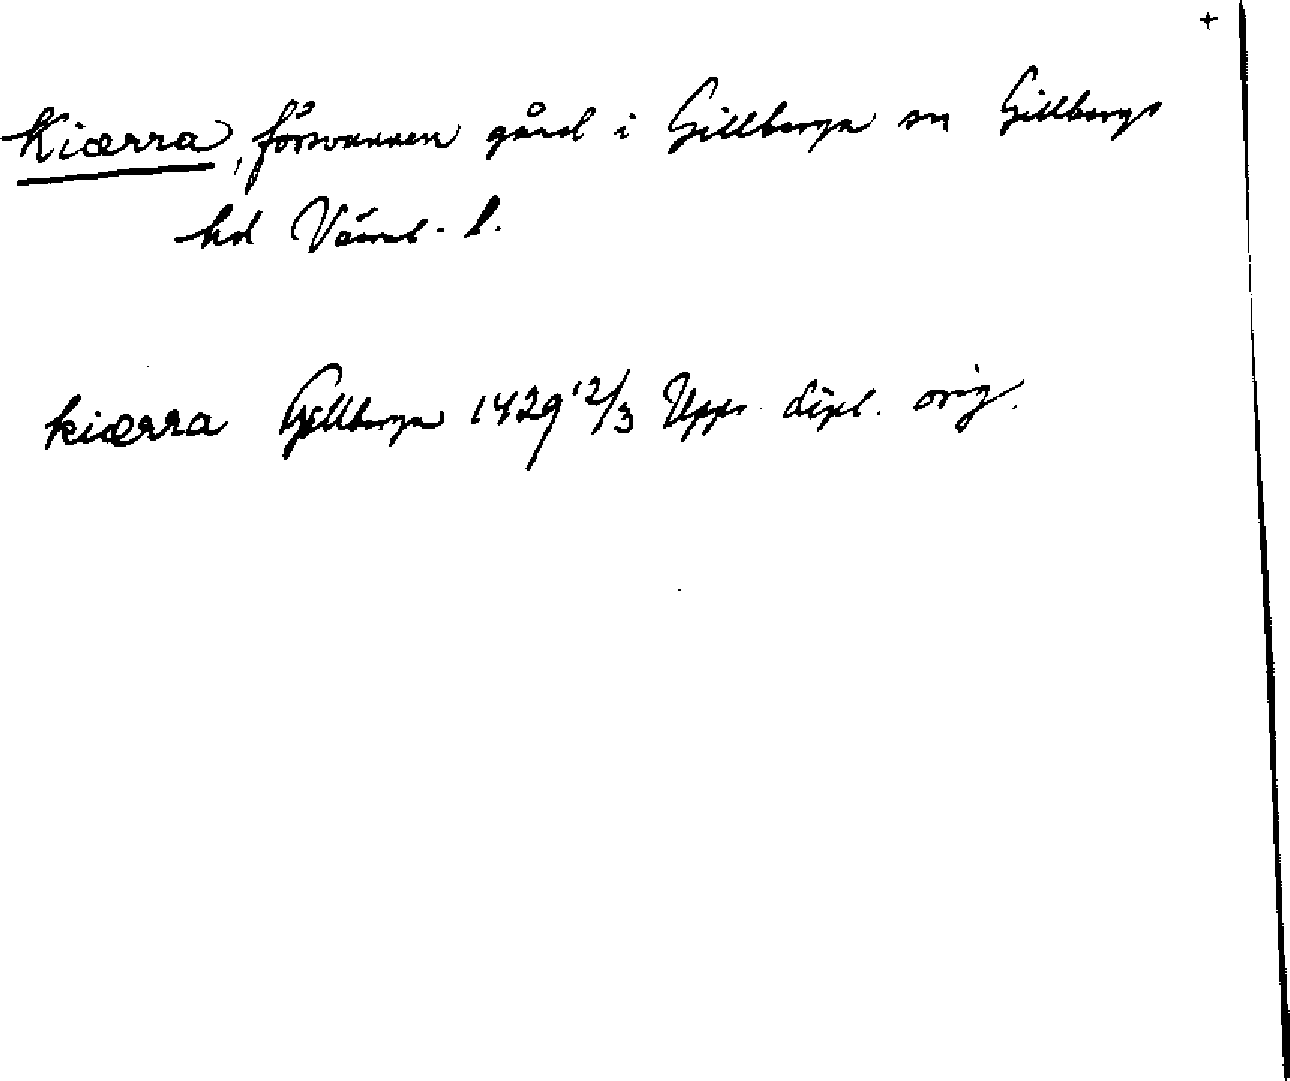 +
Kiærra, försvunnen gård i Gillberga sn Gillbergs
hd Värml. l.
kiærra Gyllberga 1429 12/3 Upps. dipl. orig.